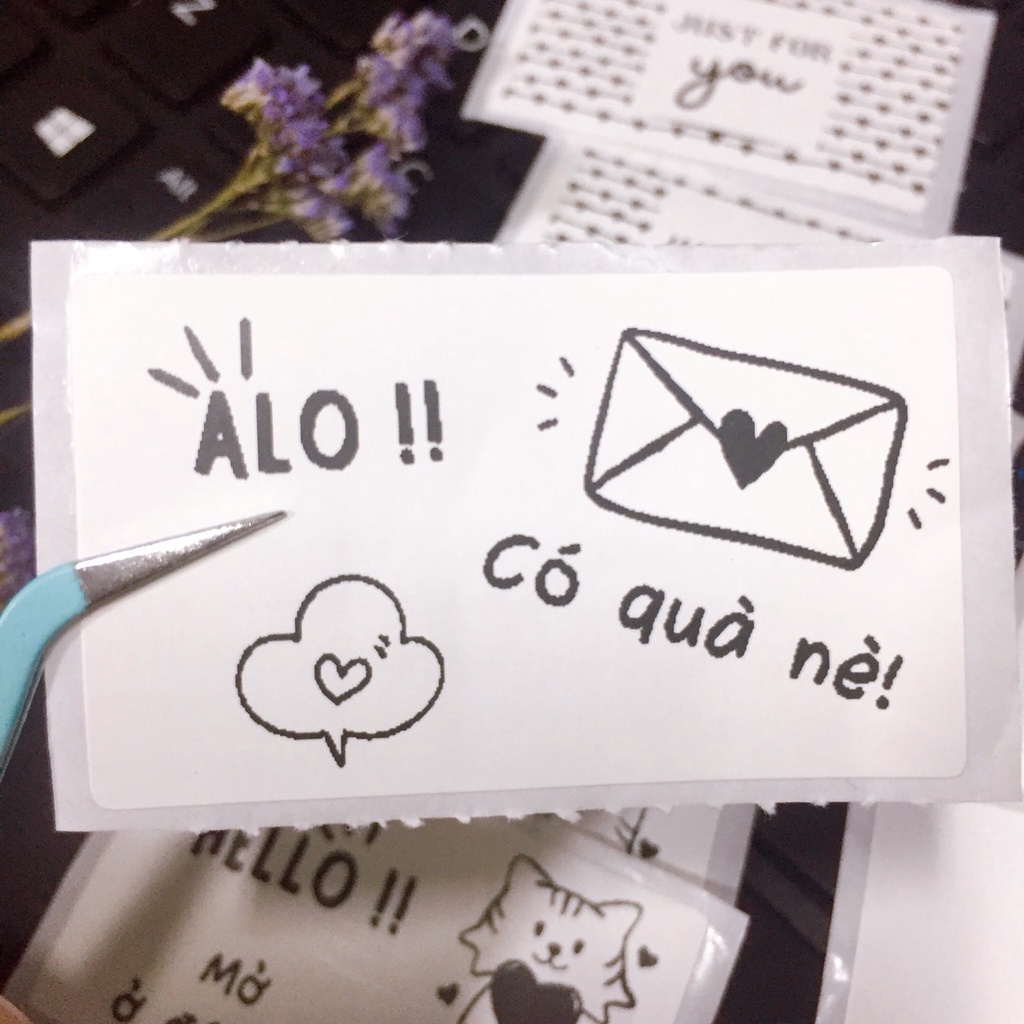 Z
Alt
JUST FOR
you
ALO !!
Có quà nè!
HELLO !!
Mở
ở